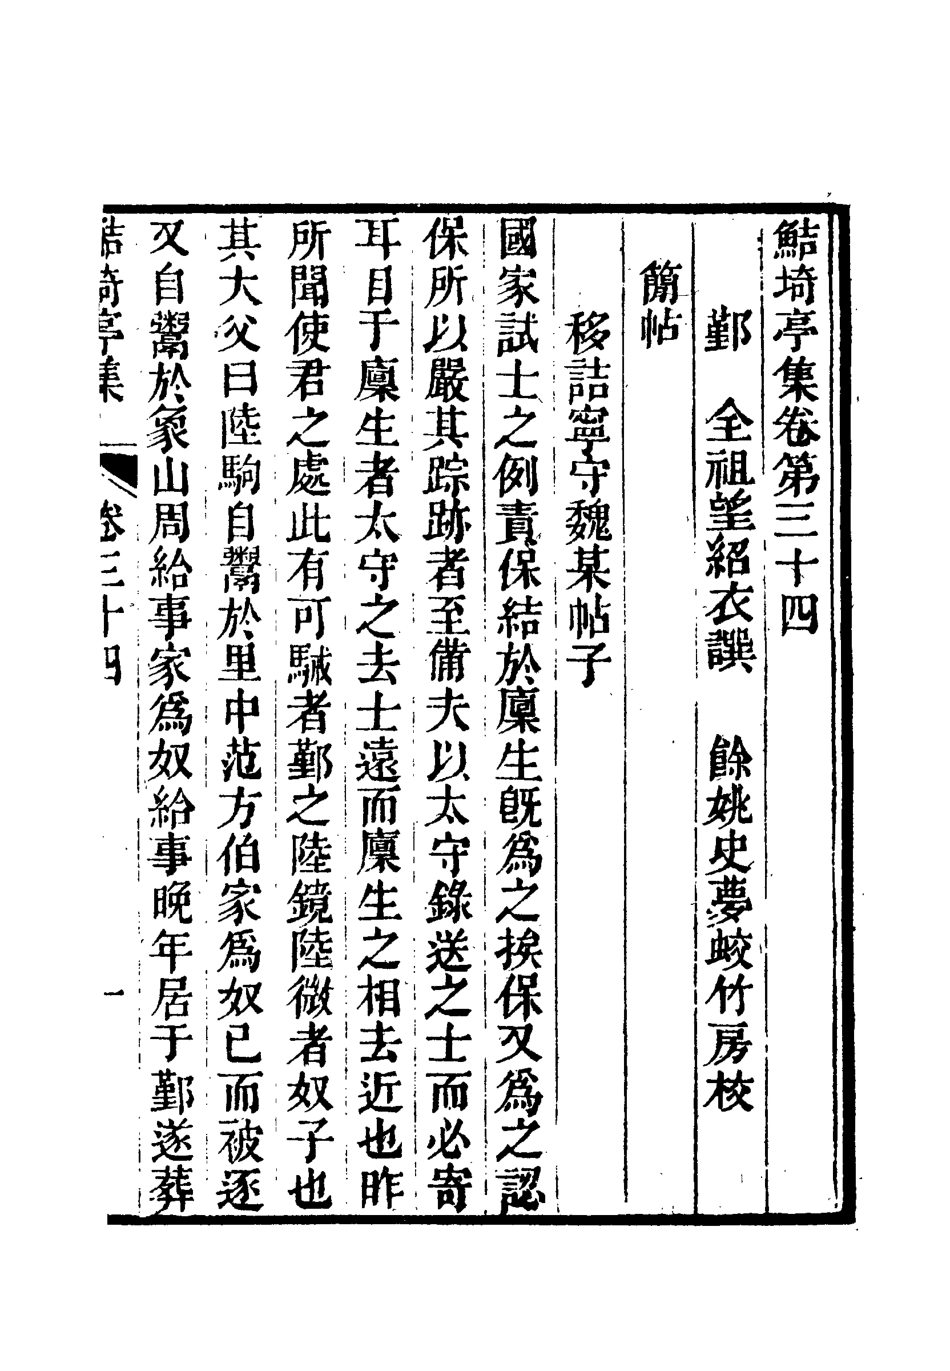 鮚埼亭集卷第三十四
鄞　全祖望紹衣譔　餘姚史夢蛟竹房校
簡帖
移詰寧守魏某帖子
國家試士之例責保結於廩生旣爲之挨保又爲之認
保所以嚴其踪跡者至備夫以太守錄送之士而必寄
耳目于廩生者太守之去士遠而廩生之相去近也昨
所聞使君之處此有可駴者鄞之陸鏡陸微者奴子也
其大父曰陸駒自鬻於里中范方伯家爲奴已而被逐
又自鬻於象山周給事家爲奴給事晚年居于鄞遂葬
鮚埼亭集　卷三十四　一